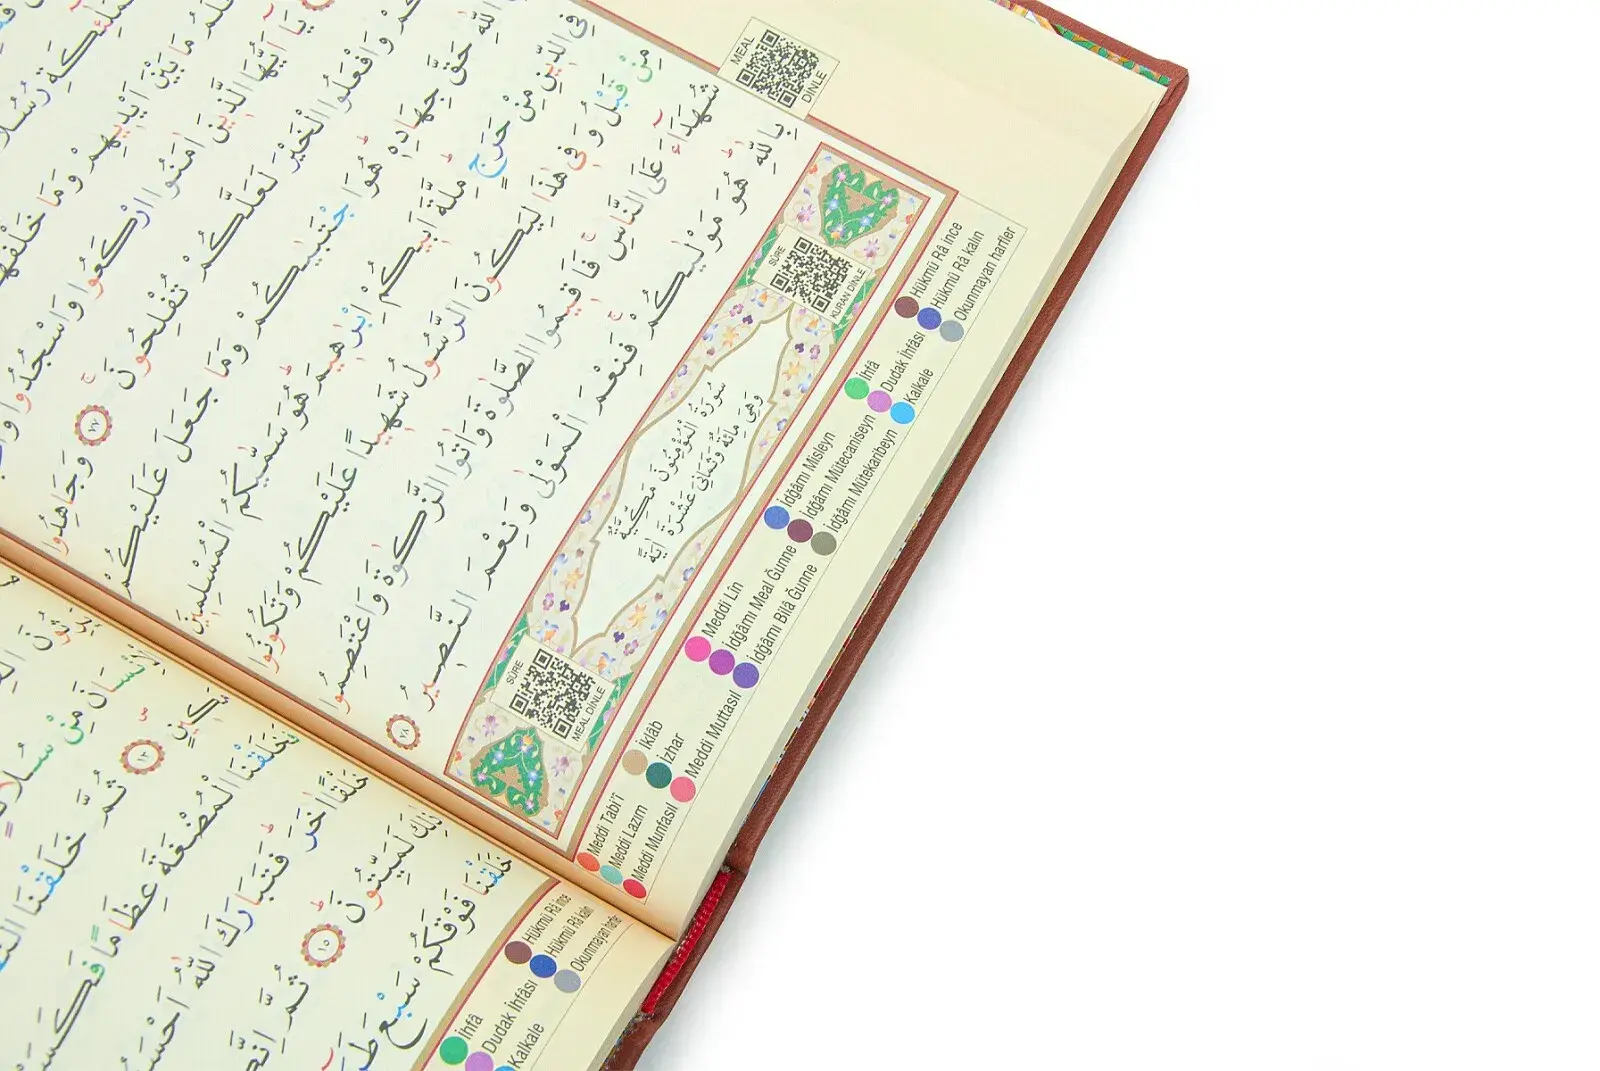 مَلٰئِكَةِ رُسُلًا
مَا بَيْنَ اَيْدِيهِمْ وَمَا خَلْفَهُمْ
يَا اَيُّهَا الَّذِينَ اٰمَنُوا ارْكَعُوا وَاسْجُدُوا
وَافْعَلُوا الْخَيْرَ لَعَلَّكُمْ تُفْلِحُونَ ٧٧ وَجَاهِدُوا
اللّٰهِ حَقَّ جِهَادِهِ هُوَ اجْتَبٰيكُمْ وَمَا جَعَلَ عَلَيْكُمْ
فِي الدِّينِ مِنْ حَرَجٍ مِلَّةَ اَبِيكُمْ اِبْرٰهِيمَ هُوَ سَمّٰيكُمُ الْمُسْلِمِينَ
مِنْ قَبْلُ وَفِي هٰذَا لِيَكُونَ الرَّسُولُ شَهِيدًا عَلَيْكُمْ وَتَكُونُوا
شُهَدَاءَ عَلَى النَّاسِ فَاَقِيمُوا الصَّلٰوةَ وَاٰتُوا الزَّكٰوةَ وَاعْتَصِمُوا
بِاللّٰهِ هُوَ مَوْلٰيكُمْ فَنِعْمَ الْمَوْلٰى وَنِعْمَ النَّصِيرُ ٧٨
MEAL
DİNLE
SÛRE
KURAN DİNLE
سُورَةُ الْمُؤْمِنُونَ مَكِّيَّةٌ
وَهِيَ مِائَةٌ وَثَمَانِيَ عَشْرَةَ اٰيَةً
SÛRE
MEAL DİNLE
Meddi Tabi'î
Meddi Lazım
Meddi Munfasıl
İklâb
İzhar
Meddi Muttasıl
Meddi Lîn
İdğâmı Meal Ğunne
İdğâmı Bilâ Ğunne
İdğâmı Misleyn
İdğâmı Mütecaniseyn
İdğâmı Mütekaribeyn
İhfâ
Dudak İhfâsı
Kalkale
Hükmü Râ ince
Hükmü Râ kalın
Okunmayan harfler
الْاِنْسَانَ مِنْ
مَكِينٍ ١٣ ثُمَّ خَلَقْنَا
فَخَلَقْنَا الْمُضْغَةَ عِظَامًا
خَلْقًا اٰخَرَ فَتَبَارَكَ اللّٰهُ
ذٰلِكَ لَمَيِّتُونَ ١٥ ثُمَّ
خَلَقْنَا فَوْقَكُمْ سَبْعَ
İhfâ
Dudak İhfâsı
Kalkale
Hükmü Râ ince
Hükmü Râ kalın
Okunmayan harfler